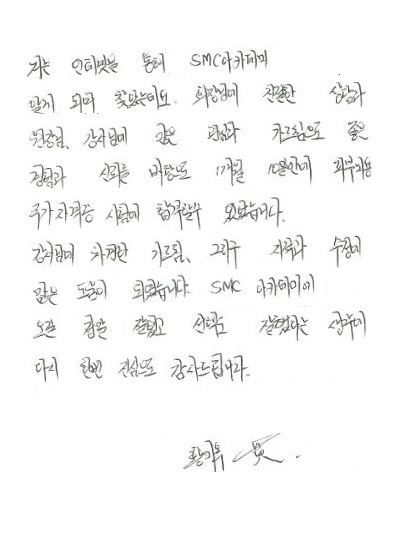 저는 인터넷을 통해 SMC아카데미
알게 되며 찾았는데요. 회장님의 친절한 상담과
원장님, 강사님의 깊은 관심과 가르침으로 좋은
경험과 신뢰를 바탕으로 1개월 10일만에 피부미용
국가자격증 시험에 합격할수 있었습니다.
강사님의 차분한 가르침, 그리구 지적과 수정이
많은 도움이 되었습니다. SMC 아카데미에
오길 정말 잘했고 선택도 잘했다는 생각에
다시 한번 진심으로 감사드립니다.